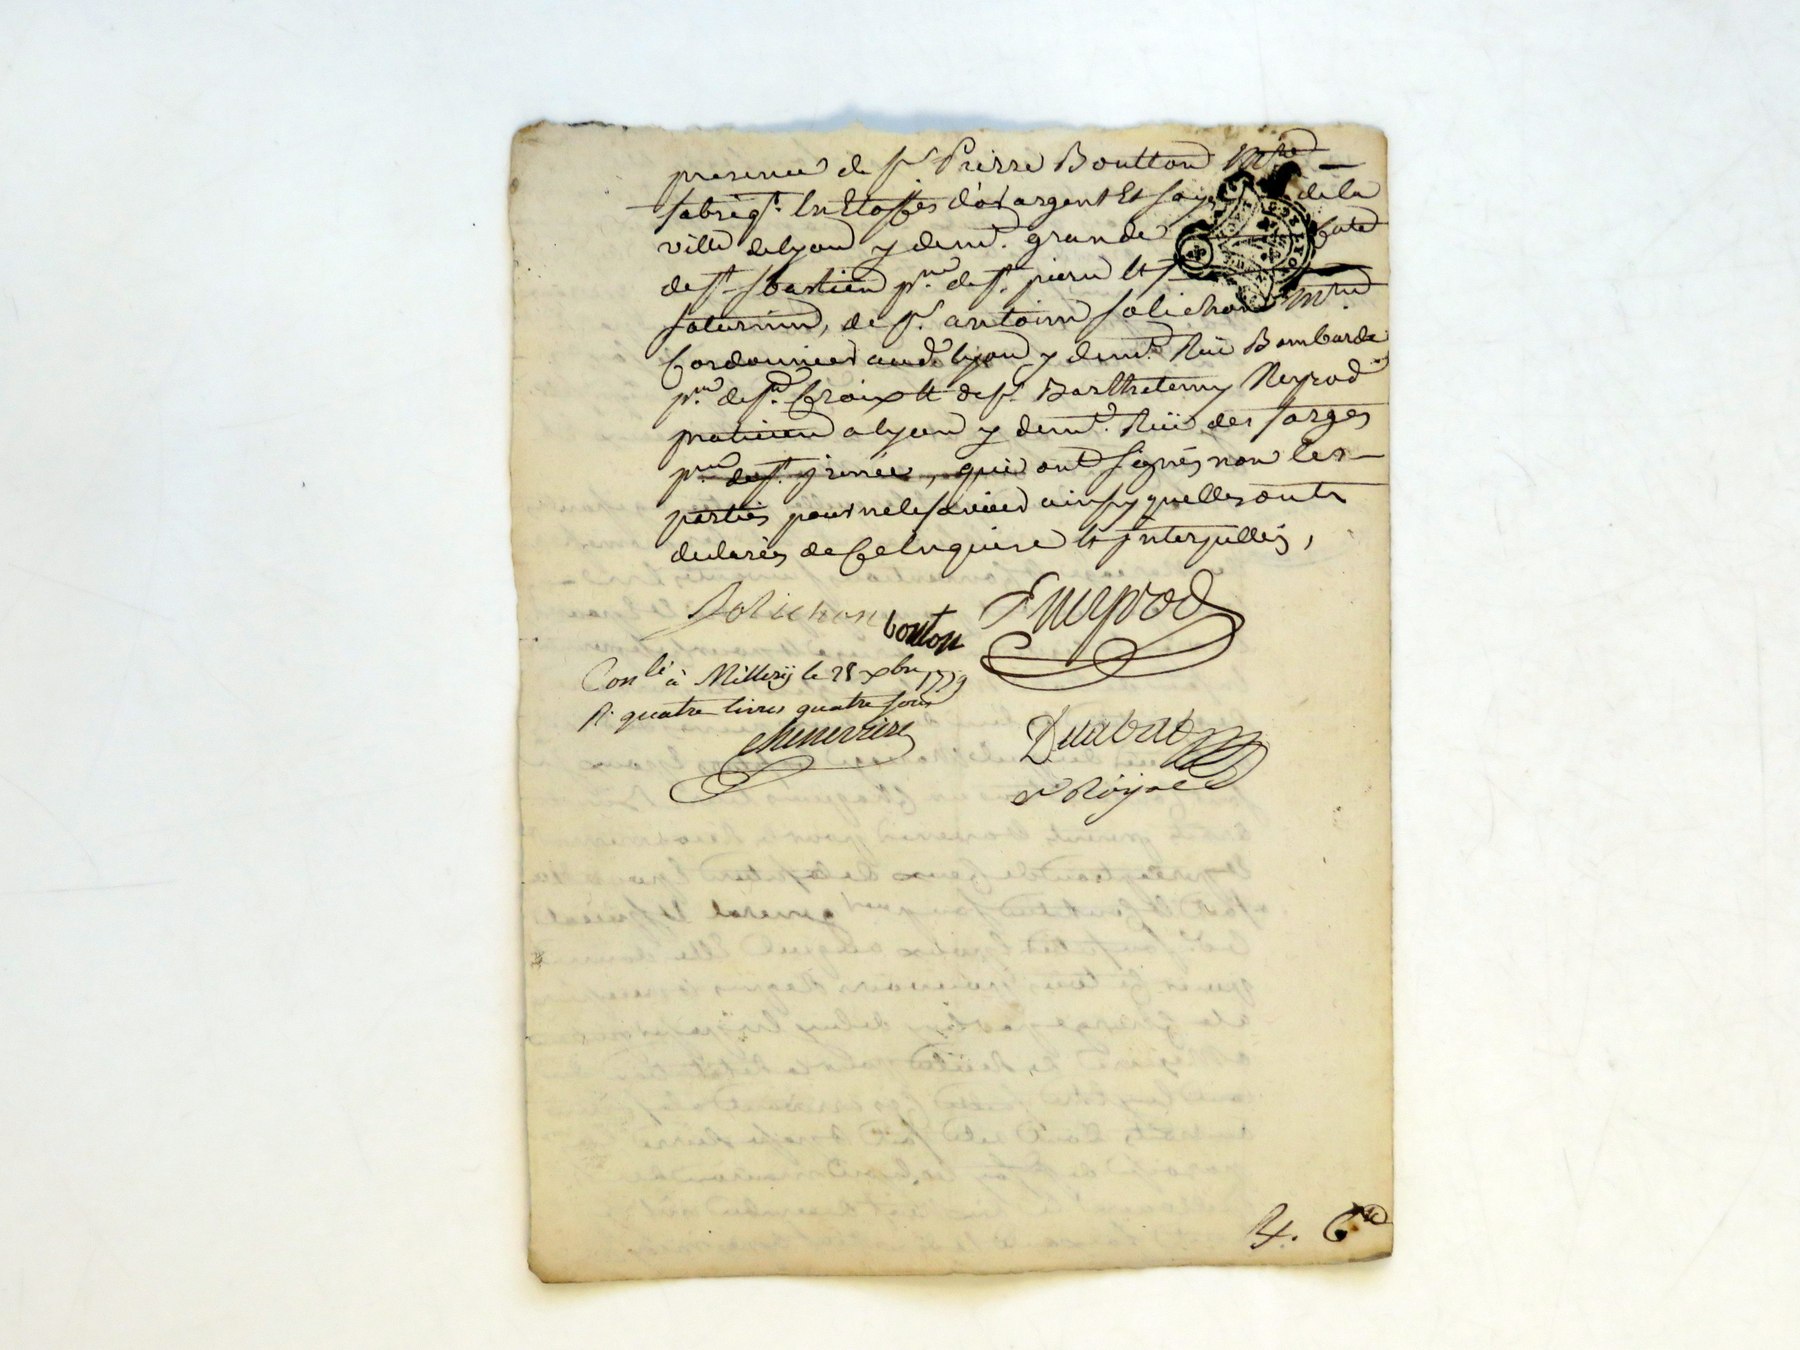 presence de Sr. Pierre Boutton Mtre
fabriqt. En Etoffes d'or argent Et soye de la
ville de lyon y demt. grande Cote
de St. Sbastien psse. de St. pierre Et St
Saturnin, de Sr. antoine Solichon Mtre
Cordonnier aud. lyon y demt. Rüe Bombarde
psse. de Ste. Croix Et de Sr. Barthelemy Neyrod
praticien a lyon y demt. Rüe des farges
psse. de St. jrenée, qui ont signés non les
parties pour ne le sçavoir ainsy quelles ont
declarées de Ce Enquise Et jnterpellés,
Solichon bouton Fneyrod
Conlé à Millery le 28 Xbre 1779
R. quatre livres quatre sous
chenevriere
Delabat
nre Royal